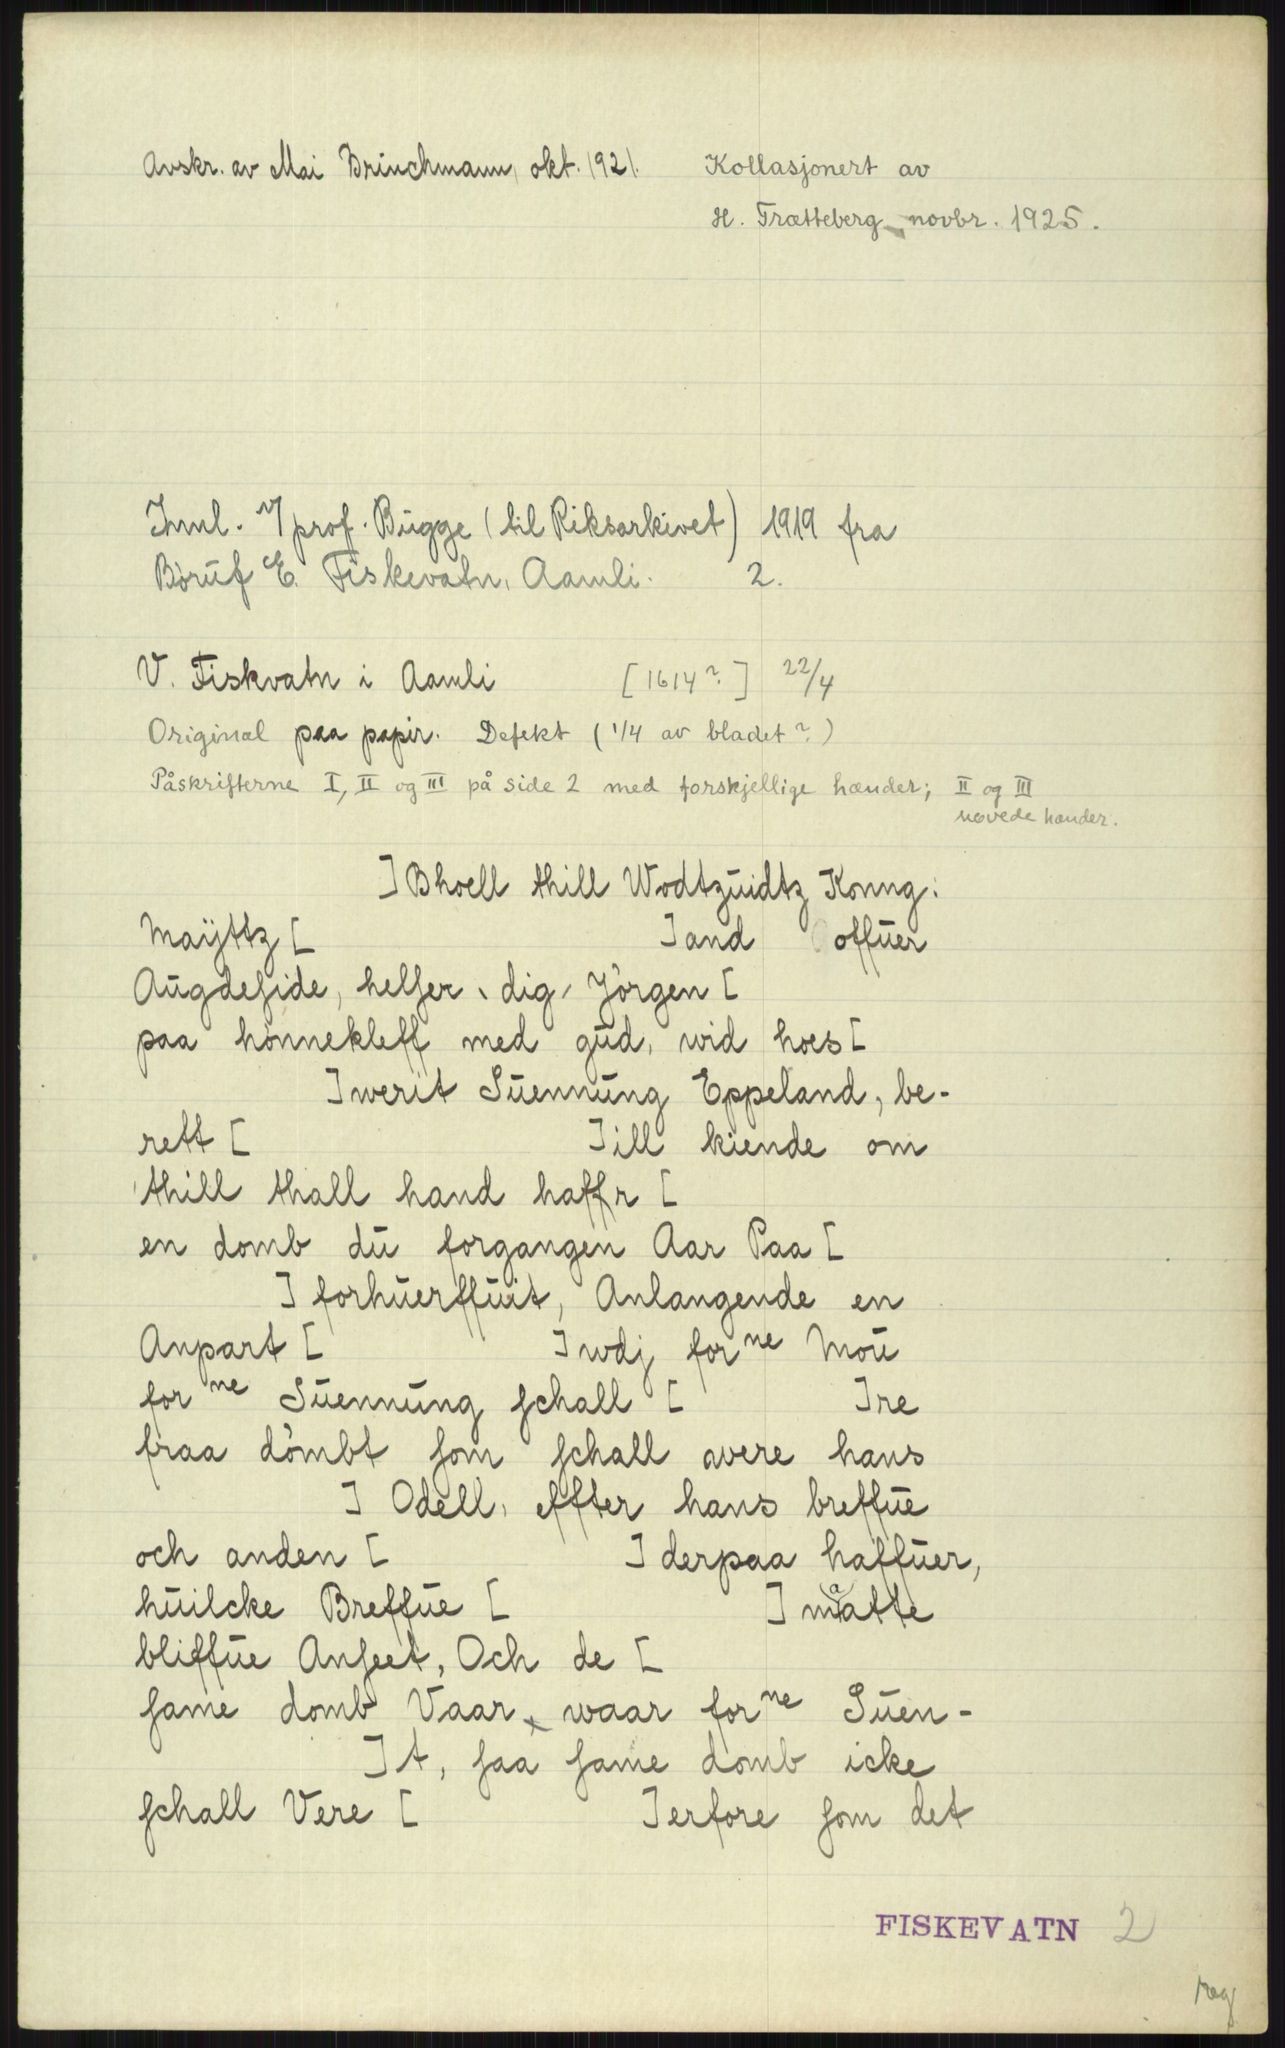 Avskr. av Mai Brinchmann, okt. 1921. Kollasjonert av
H. Trætteberg novbr. 1925.
Innl. v/ prof. Bugge (til Riksarkivet) 1919 fra
Børuf E. Fiskevatn, Aamli. 2.
V. Fiskvatn i Aamli [1614?] 22/4
Original paa papir. Defekt (1/4 av bladet?)
Påskrifterne I, II og III på side 2 med forskjellige hænder; II og III
uøvede hænder.
] Bhoell thill Wodtzuidtz Konng:
Maÿttz [ ] and offuer
Augdeside, helser, dig, Jörgen [
paa hönnekleff med gud, wid hoes [
] werit Suennung Eppeland, be-
rett [ ] ill kiende om
thill thall hand haffr [
en domb du forgangen Aar Paa [
] forhuerffuit, Anlangende en
Anpart [ ] wdj forne Mou
forne Suennung schall [ ] re
fraa dömbt som schall were hans
] Odell, effter hans breffue
och anden [ ] derpaa haffuer,
huilcke Breffue [ ] maatte
bliffue Anseet, Och de [
same domb Vaar x waar forne Suen-
] t, saa same domb icke
schall Vere [ ] erfore som det
FISKEVATN 2
reg